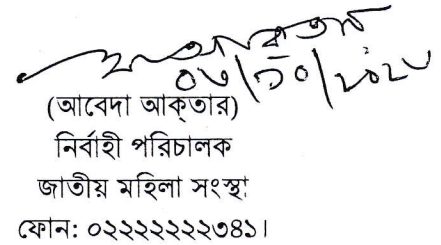 (আবেদা আক্তার)
নির্বাহী পরিচালক
জাতীয় মহিলা সংস্থা
ফোন: ০২২২২২২২৩৪১।